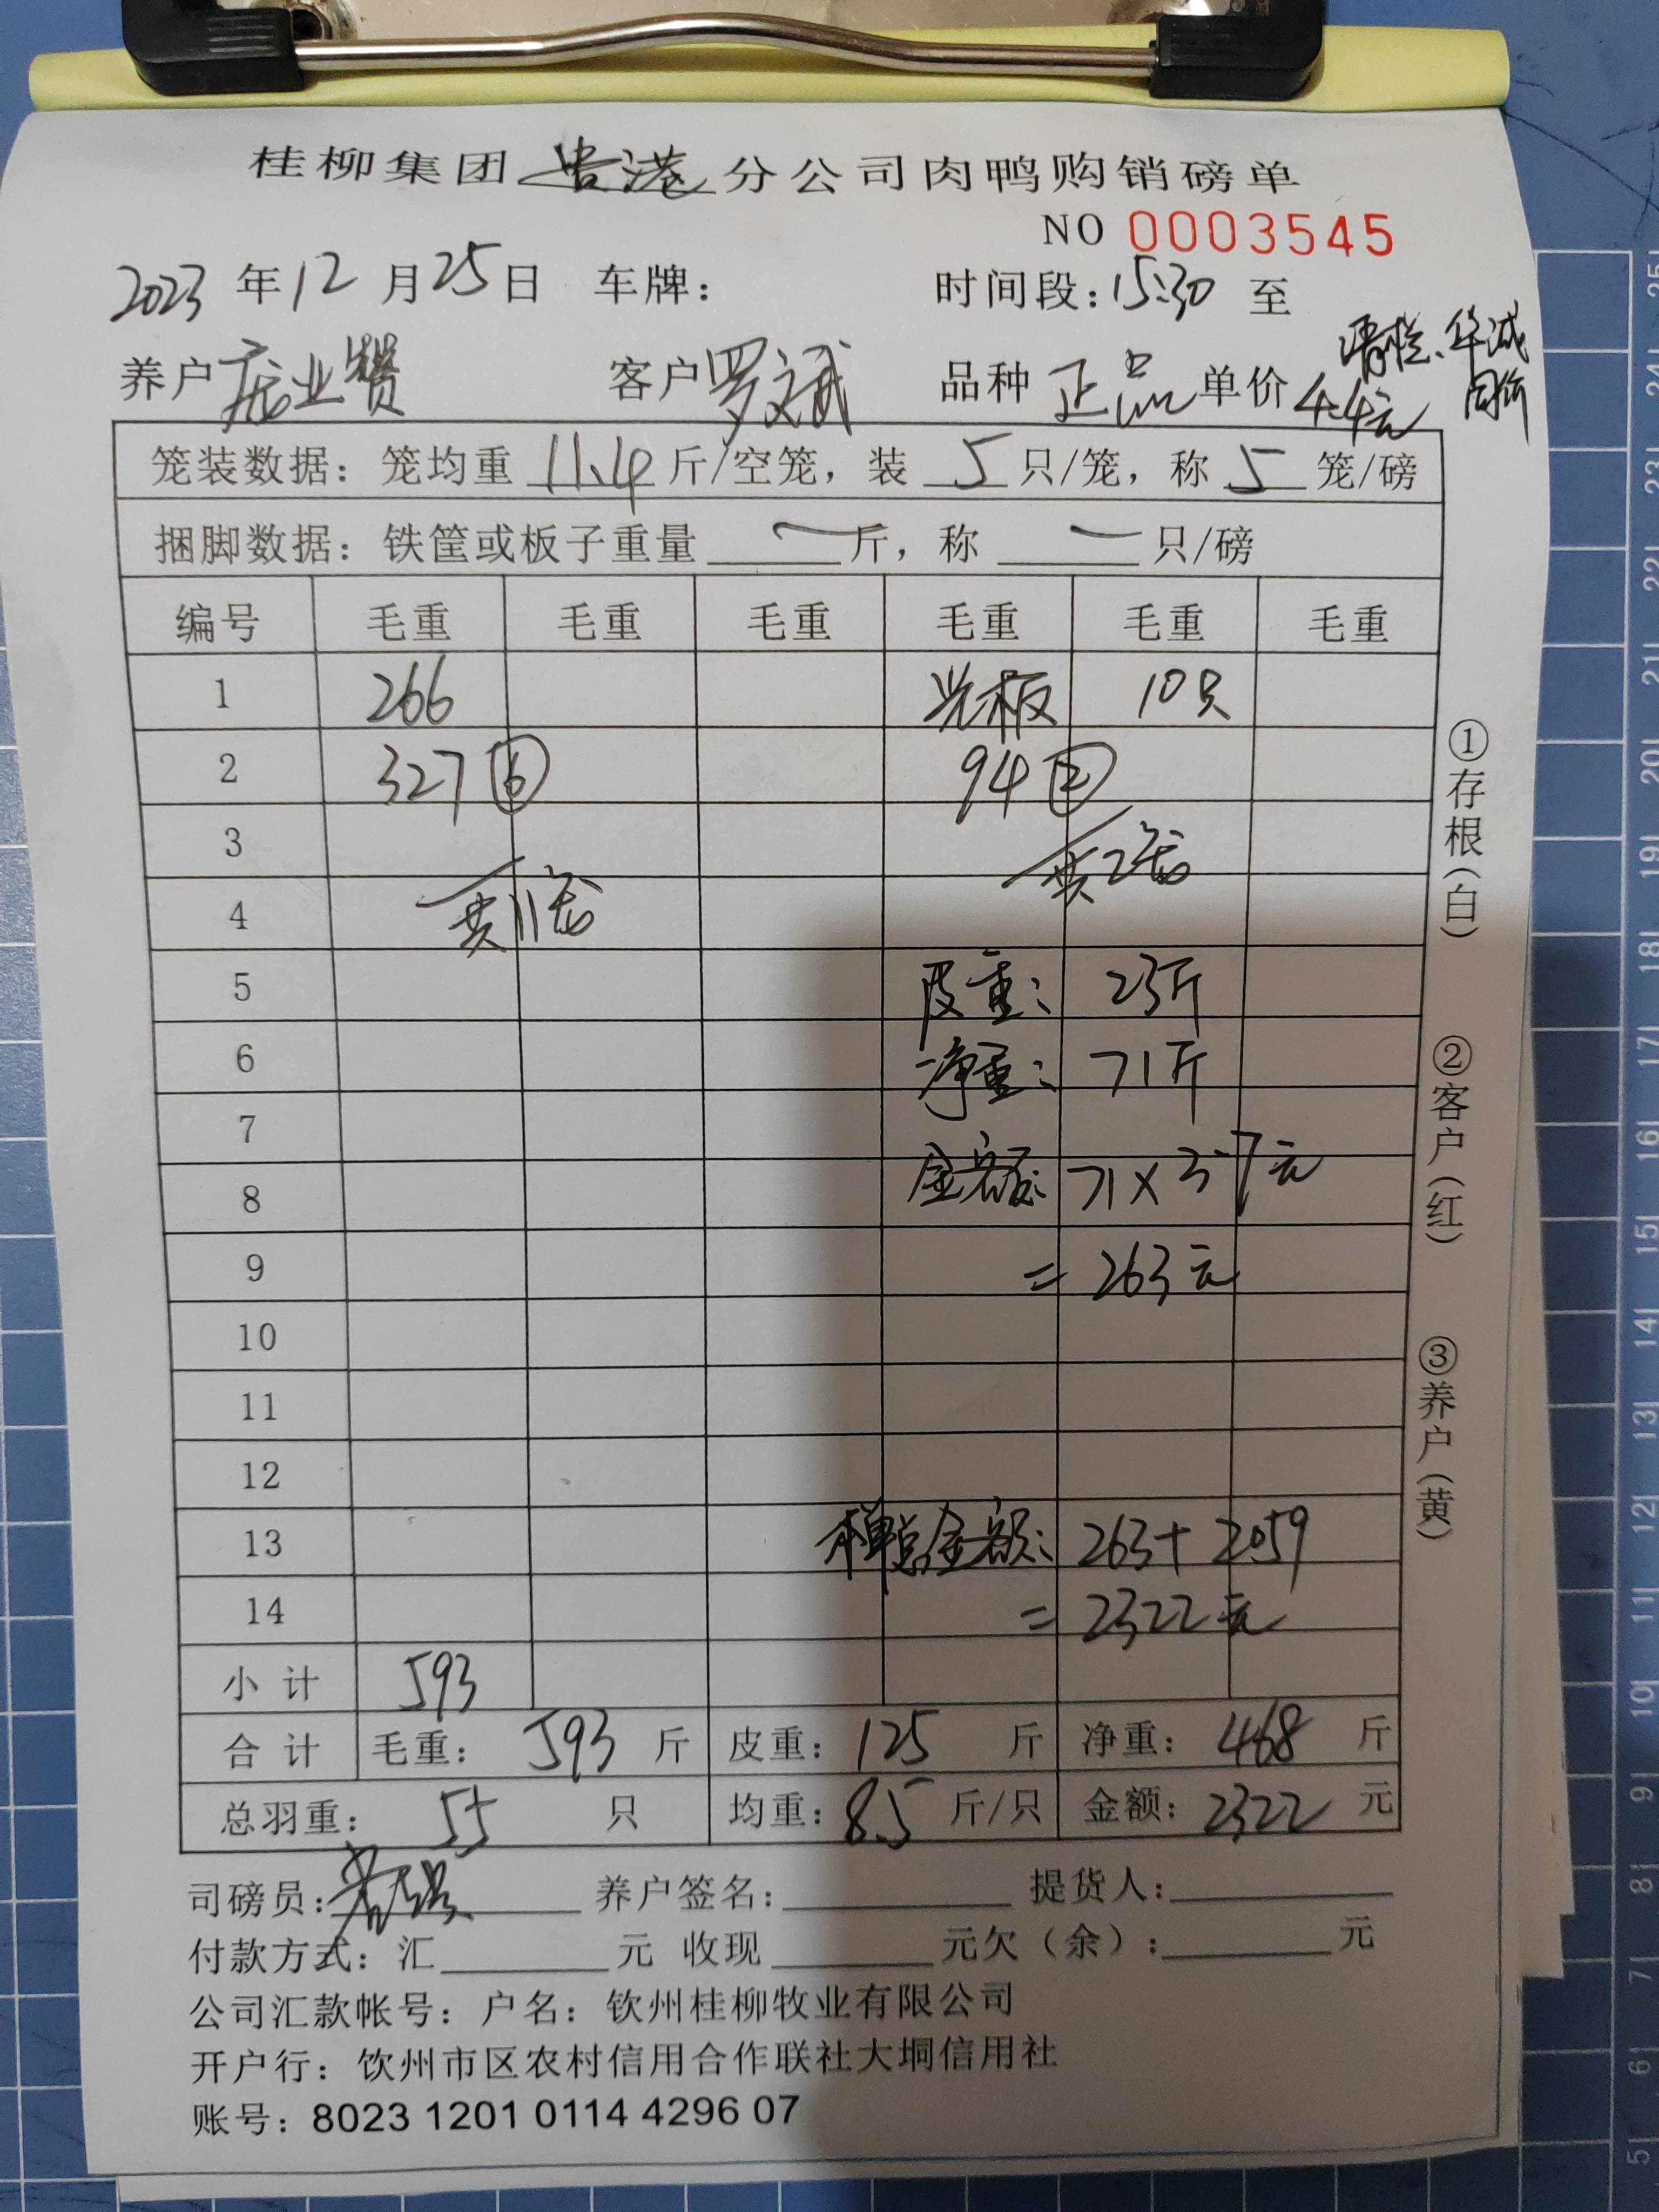 桂柳集团贵港分公司肉鸭购销磅单
NO 0003545
2023年12月25日 车牌： 时间段：15:30 至
清栏、华诚
同价
养户 庞业赞 客户 罗文武 品种 正品 单价 4.4元
笼装数据：笼均重 11.4 斤/空笼，装 5 只/笼，称 5 笼/磅
捆脚数据：铁筐或板子重量 — 斤，称 — 只/磅
编号 毛重 毛重 毛重 毛重 毛重 毛重
1 266 光板 10只
2 327 ⑥ 94 ②
3 共2笼
4 共11笼
5 皮重： 23斤
6 净重： 71斤
7
8 金额： 71×3.7元
9 =263元
10
11
12
13 本单总金额： 263+2059
14 =2322元
小计 593
合计 毛重： 593 斤 皮重： 125 斤 净重： 468 斤
总羽重： 55 只 均重： 8.5 斤/只 金额： 2322 元
司磅员： 养户签名： 提货人：
付款方式：汇 元 收现 元欠（余）： 元
公司汇款帐号：户名：钦州桂柳牧业有限公司
开户行：饮州市区农村信用合作联社大垌信用社
账号：8023 1201 0114 4296 07
①存根（白）
②客户（红）
③养户（黄）
25
24
23
22
21
20
19
18
17
16
15
14
13
12
11
10
9
8
7
6
5